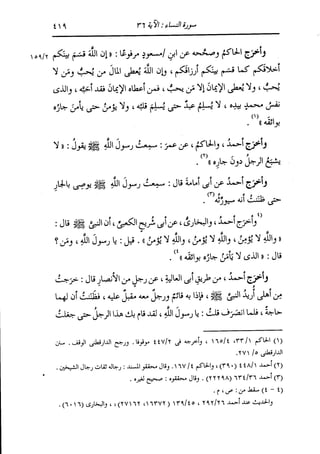 سورة النساء : الآية ٣٦
٤١٩
وأخرج الحاكم وصححه عن ابنِ مسعودٍ مرفوعًا : « إن اللَّهَ قسَم بينَكم
١٥٩/٢
أخلاقَكم كما قسَم بينَكم أرزاقَكم ، وإن اللَّهَ يُعطى المالَ من يُحبُّ ومَن لا
يُحبُّ ، ولا يُعطى الإيمانَ إلا مَن يحب ، فمن أعطاه الإيمانَ فقد أحبَّه ، والذى
نفسُ محمدٍ بيدِه ، لا يُسلِمُ عبدٌ حتى يُسلِمَ قلبُه ، ولا يؤمنُ حتى يأمنَ جارُه
بوائقَه »(١) .
وأخرَج أحمدُ ، والحاكمُ ، عن عمرَ : سمِعتُ رسولَ اللَّهِ ﷺ يقولُ : « لا
يشبَعُ الرجلُ دونَ جارِه »(٢) .
وأخرَج أحمدُ عن أبى أمامةَ قال : سمِعتُ رسولَ اللَّهِ ﷺ يوصِى بالجارِ
حتى ظننتُ أنه سيورِّثُه(٣) .
(٤)وأخرَج أحمدُ ، والبخارىُّ ، عن أبى شريحٍ الكعبىِّ ، أن النبىَّ ﷺ قال :
« واللَّهِ لا يُؤمنُ ، واللَّهِ لا يُؤمنُ ، واللَّهِ لا يُؤمنُ » . قيل : يا رسولَ اللَّهِ ، ومَن ؟
قال : « الذى لا يَأْمَنُ جارُه بوائقَه »(٤) .
وأخرَج أحمدُ ، من طريقِ أبى العاليةِ ، عن رجلٍ من الأنصارِ قال : خرَجتُ
مِن أهلى أُريدُ النبىَّ ﷺ ، فإذا به قائمٌ ورجلٌ معه مقبلٌ عليه ، فظننتُ أن لهما
حاجةً ، فلما انصرَف قلتُ : يا رسولَ اللَّهِ ، لقد قام بك هذا الرجلُ حتى جعَلتُ
(١) الحاكم ٣٣/١ ، ١٦٥/٤ ، وأخرجه فى ٤٤٧/٢ موقوفا . ورجح الدارقطنى الوقف . سنن
الدارقطنى ٢٧١/٥ .
(٢) أحمد ٤٤٨/١ (٣٩٠) ، والحاكم ١٦٧/٤ . وقال محققو المسند : رجاله ثقات رجال الشيخين .
(٣) أحمد ٦٣٤/٣٦ (٢٢٢٩٨) . وقال محققوه : صحيح لغيره .
(٤ - ٤) سقط من : ص ، م .
والحديث عند أحمد ٢٩٢/٢٦ ، ١٣٩/٤٥ (١٦٣٧٢ ، ٢٧١٦٢) ، والبخارى (٦٠١٦) .